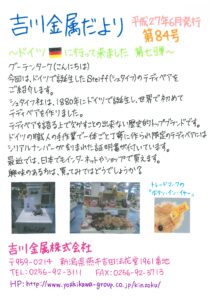 吉川金属だより 平成27年6月発行
第84号
～ドイツに行って来ました 第七弾～
グーテンターク(こんにちは)
今回は、ドイツで誕生したSteiff(シュタイフ)のテディベアを
ご紹介します。
シュタイフ社は、1880年にドイツで誕生し、世界で初めて
テディベアを作りました。
テディベアを語る上で欠かすことの出来ない歴史的トップブランドです。
ドイツの職人の手作業で一体ごと丁寧に作られ限定のテディベアには
シリアルナンバーが刻まれた証明書が付いています。
最近では、日本でもインターネットやショップで買えます。
興味のある方は、買ってみてはどうでしょうか?
トレードマークの
"ボタン・イン・イヤー"
吉川金属株式会社
〒959-0214 新潟県燕市吉田法花堂1961番地
TEL:0256-92-3111 FAX:0256-92-3713
HP:http://www.yoshikawa-group.co.jp/kinzoku/